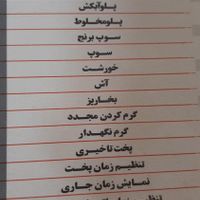 پلوآبکش
پلومخلوط
سوپ برنج
سوپ
خورشت
آش
بخارپز
گرم کردن مجدد
گرم نگهدار
پخت تاخیری
تنظیم زمان پخت
نمایش زمان جاری